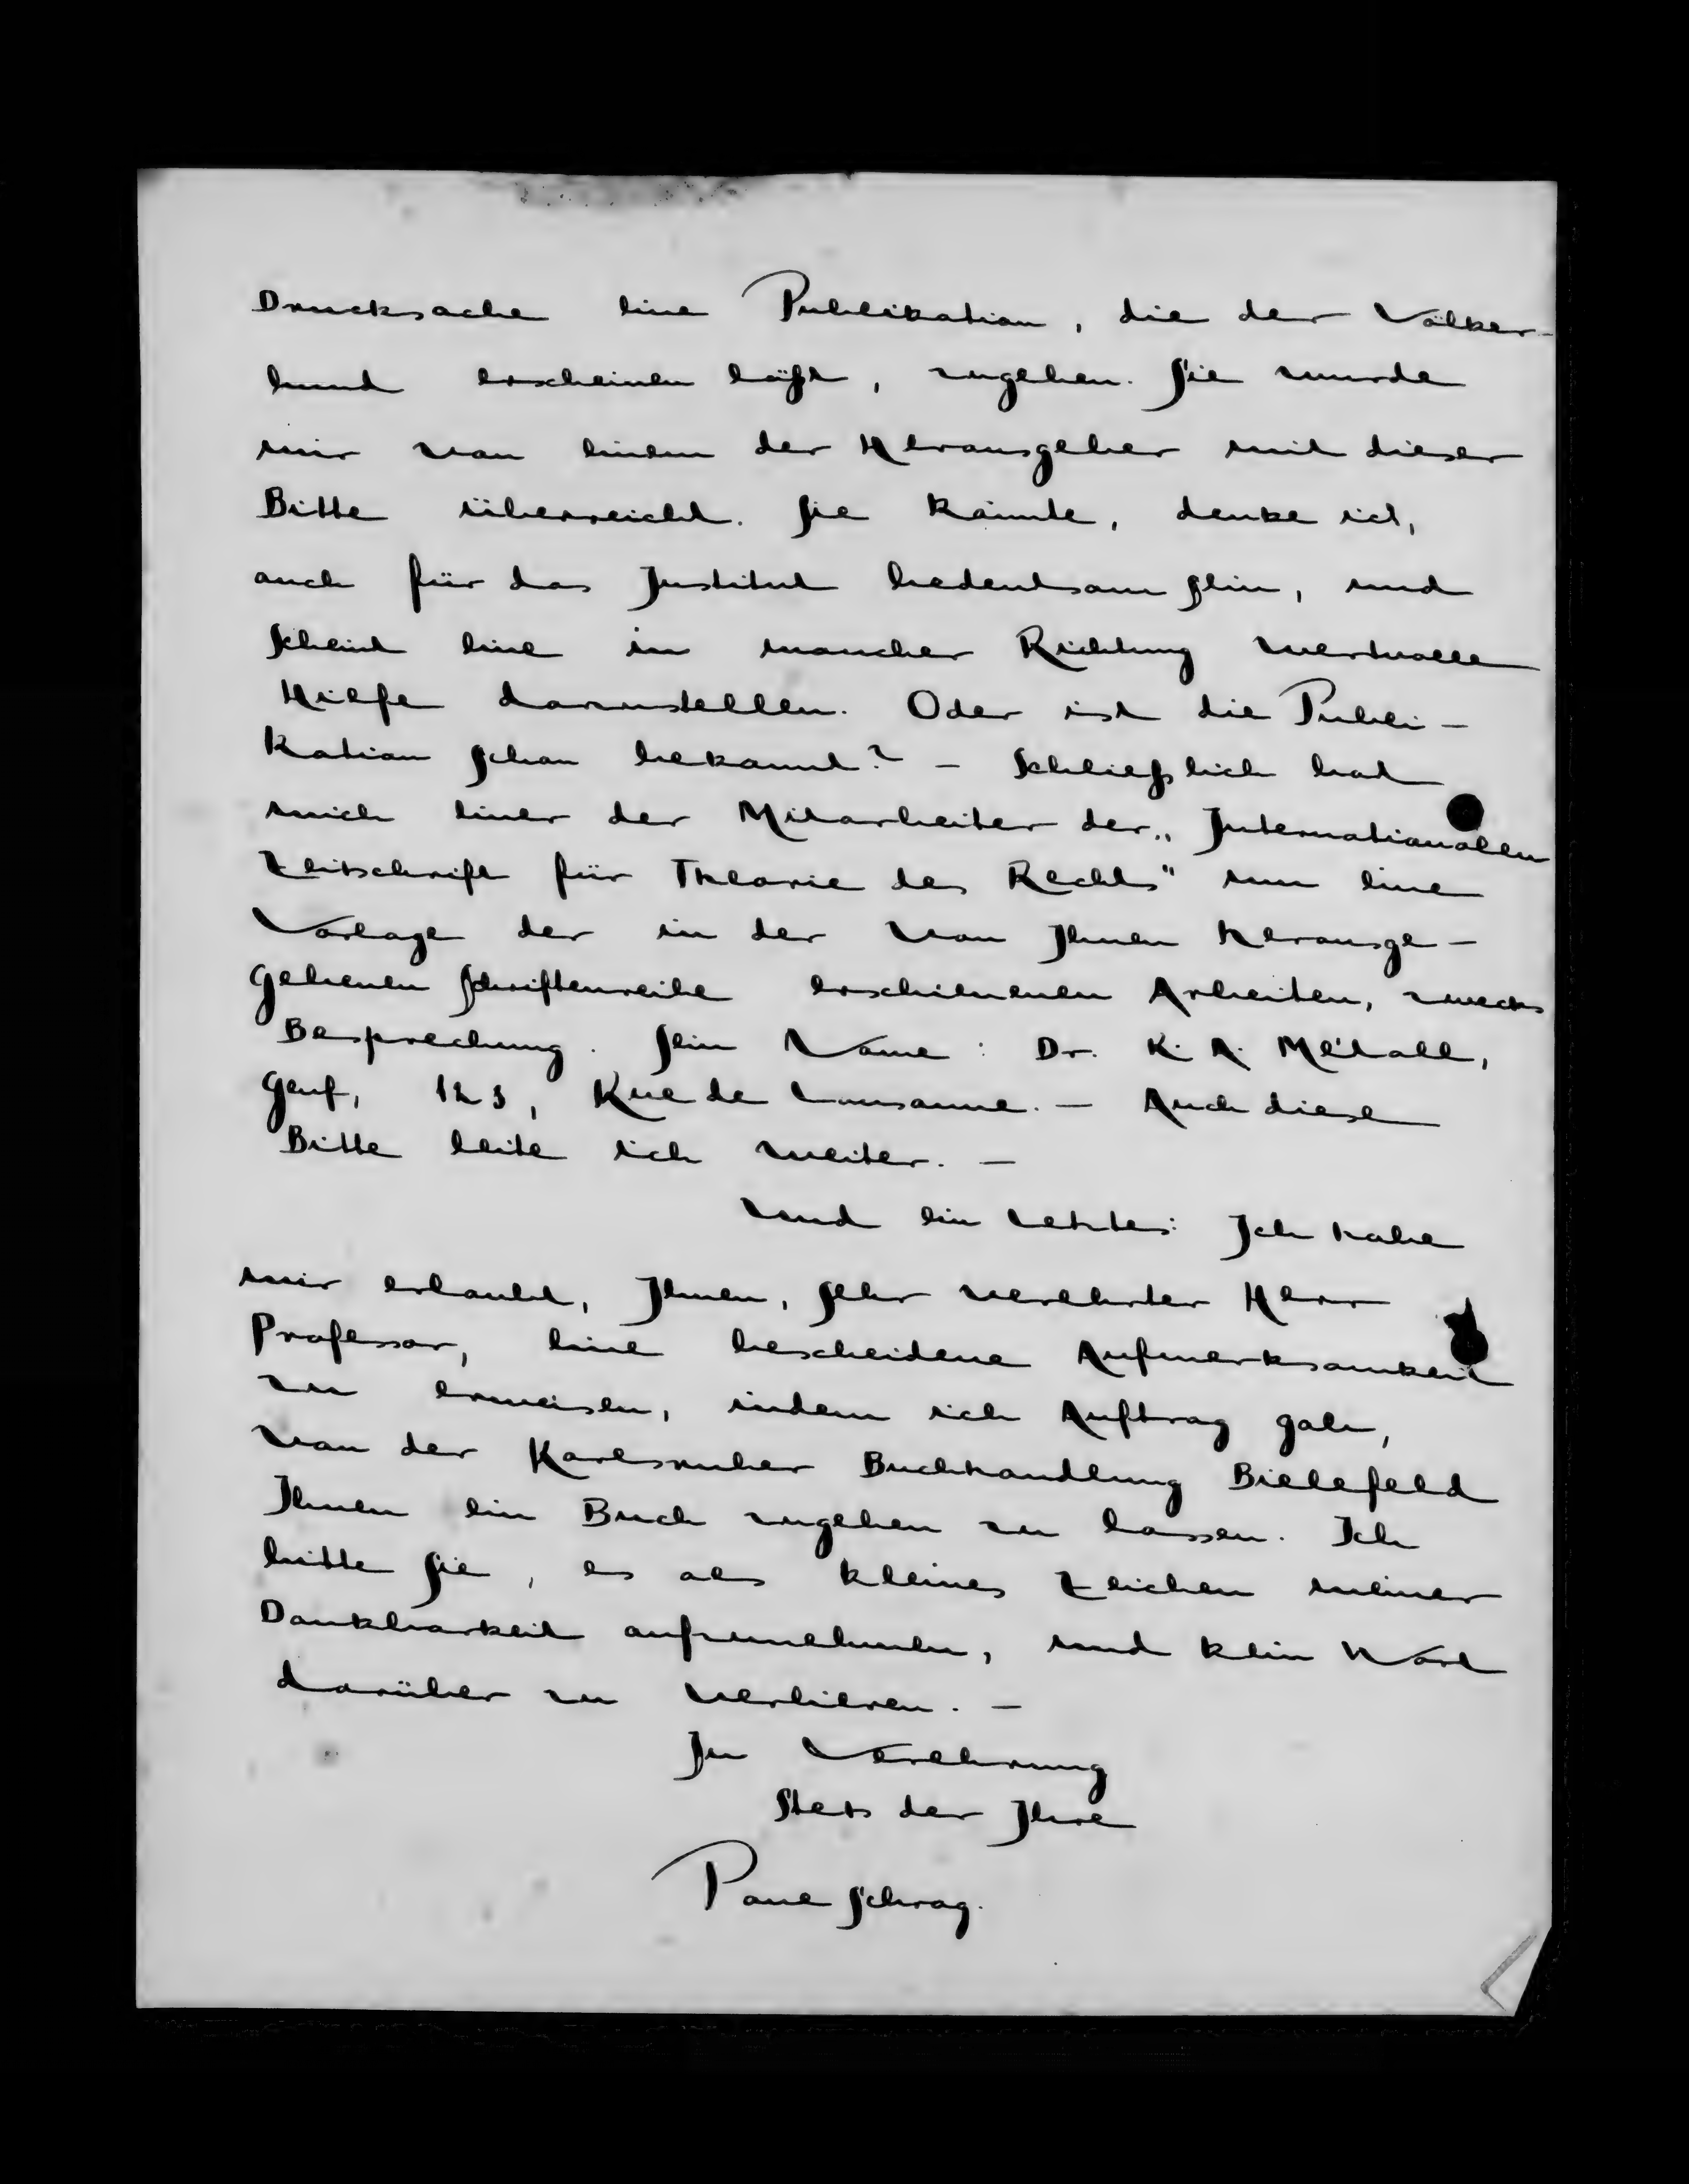 Drucksache eine Publikation, die der Völker-
bund erscheinen läßt, zugehen. Sie wurde
mir von einem der Herausgeber mit dieser
Bitte überreicht. Sie könnte, denke ich,
auch für das Institut bedeutsam sein, und
scheint eine in mancher Richtung wertvolle
Hilfe darzustellen. Oder ist die Publi-
kation schon bekannt? - Schließlich bat
mich einer der Mitarbeiter der „Internationalen
Zeitschrift für Theorie des Rechts" um eine
Vorlage der in der von Ihnen herausge-
gebenen Schriftenreihe erschienenen Arbeiten, zwecks
Besprechung. Sein Name: Dr. R. A. Métall,
Genf, 123, Rue de Lausanne. - Auch diese
Bitte leite ich weiter. -
Und ein Letztes: Ich habe
mir erlaubt, Ihnen, sehr verehrter Herr
Professor, eine bescheidene Aufmerksamkeit
zu erweisen, indem ich Auftrag gab,
von der Karlsruher Buchhandlung Bielefeld
Ihnen ein Buch zugehen zu lassen. Ich
bitte Sie, es als kleines Zeichen meiner
Dankbarkeit aufzunehmen, und kein Wort
darüber zu verlieren. -
In Verehrung
Stets der Ihre
Paul Schrag.